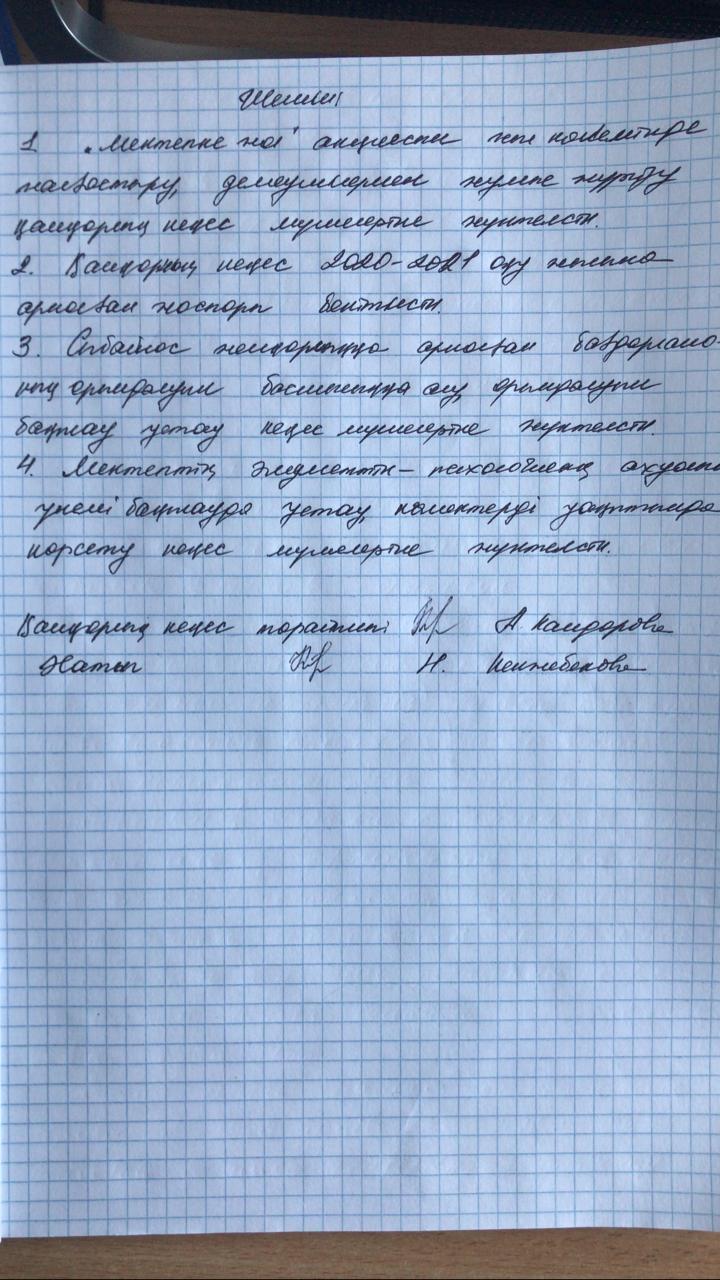 Шешімі
1. "Мектепке жол" акциясын кең көлемде
жалғастыру, демеушілермен жұмыс жүргізу
қамқорлық кеңес мүшелеріне жүктелсін.
2. Қамқорлық кеңес 2020-2021 оқу жылына
арналған жоспары бекітілсін.
3. Сыбайлас жемқорлыққа арналған бағдарлама-
ның орындалуын басшылыққа алу, орындалуын
бақылау ұстау кеңес мүшелеріне жүктелсін.
4. Мектептің әлеуметтік - психологиялық ахуалын
үнемі бақылауда ұстау, көмектерді уақытында
көрсету кеңес мүшелеріне жүктелсін.
Қамқорлық кеңес төрайымы А. Кандорова
Хатшы Н. Кенжебекова